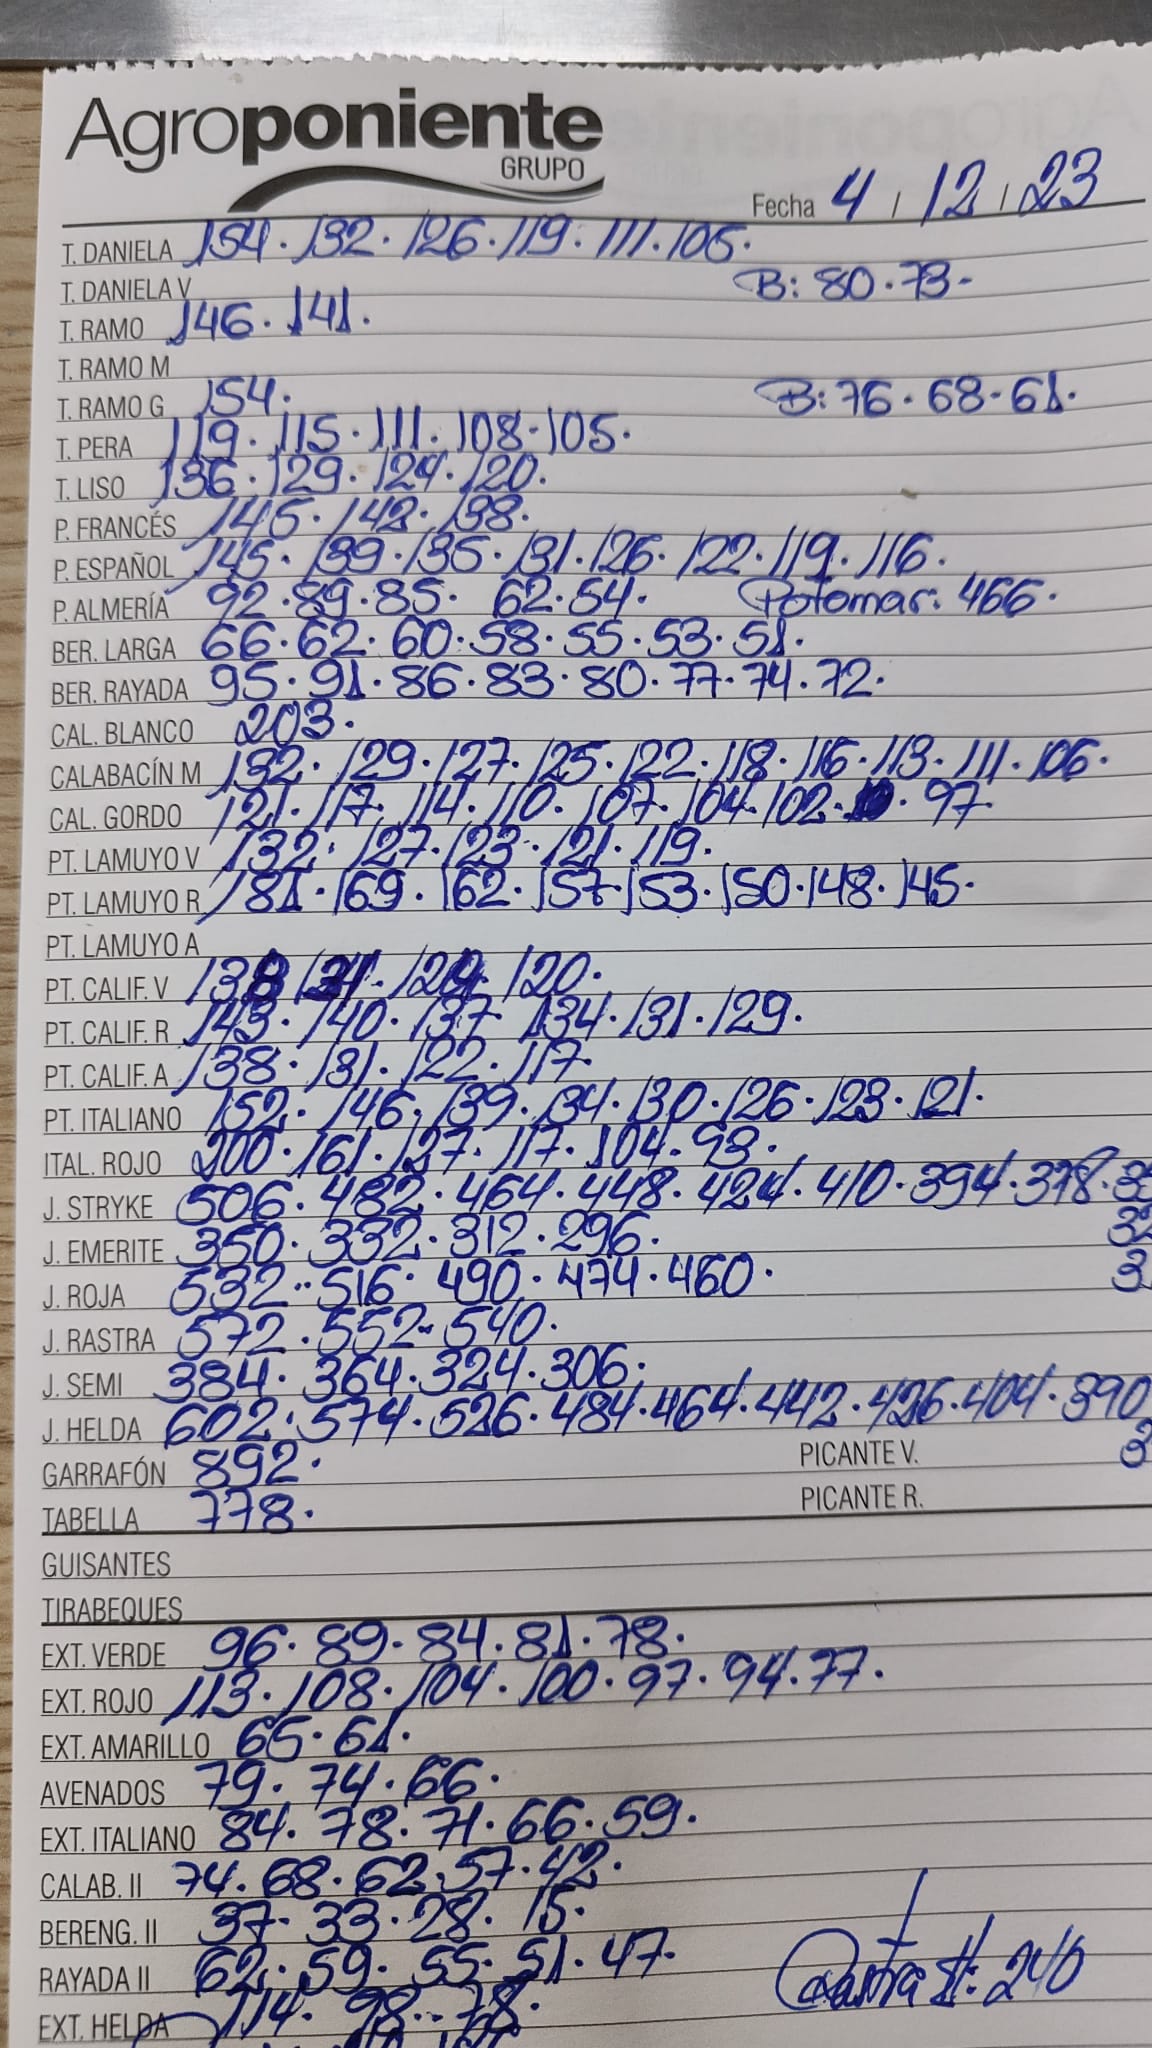 Agroponiente
GRUPO
Fecha 4 / 12 / 23
T. DANIELA 154. 132. 126. 119. 111. 105.
T. DANIELA V B: 80. 73-
T. RAMO 146. 141.
T. RAMO M
T. RAMO G 154. B: 76. 68. 61.
T. PERA 119. 115. 111. 108. 105.
T. LISO 136. 129. 124. 120.
P. FRANCÉS 145. 142. 138.
P. ESPAÑOL 145. 139. 135. 131. 126. 122. 119. 116.
P. ALMERÍA 92. 89. 85. 62. 54. Potomar: 466.
BER. LARGA 66. 62. 60. 58. 55. 53. 51.
BER. RAYADA 95. 91. 86. 83. 80. 77. 74. 72.
CAL. BLANCO 203.
CALABACÍN M 132. 129. 127. 125. 122. 118. 116. 113. 111. 106.
CAL. GORDO 121. 117. 114. 110. 107. 104. 102. 97.
PT. LAMUYO V 132. 127. 123. 121. 119.
PT. LAMUYO R 181. 169. 162. 157. 153. 150. 148. 145.
PT. LAMUYO A
PT. CALIF. V 120.
PT. CALIF. R 143. 140. 137. 134. 131. 129.
PT. CALIF. A 138. 131. 122. 117.
PT. ITALIANO 152. 146. 139. 134. 130. 126. 123. 121.
ITAL. ROJO 200. 161. 127. 117. 104. 93.
J. STRYKE 506. 482. 464. 448. 424. 410. 394. 378.
J. EMERITE 350. 332. 312. 296.
J. ROJA 532. 516. 490. 474. 460.
J. RASTRA 572. 552. 540.
J. SEMI 384. 364. 324. 306.
J. HELDA 602. 574. 526. 484. 464. 442. 426. 404. 390
GARRAFÓN 892. PICANTE V.
TABELLA 778. PICANTE R.
GUISANTES
TIRABEQUES
EXT. VERDE 96. 89. 84. 81. 78.
EXT. ROJO 113. 108. 104. 100. 97. 94. 77.
EXT. AMARILLO 65. 61.
AVENADOS 79. 74. 66.
EXT. ITALIANO 84. 78. 71. 66. 59.
CALAB. II 74. 68. 62. 57. 42.
BERENG. II 37. 33. 28. 15.
RAYADA II 62. 59. 55. 51. 47. Rastra II: 240
EXT. HELDA 114. 98. 78.